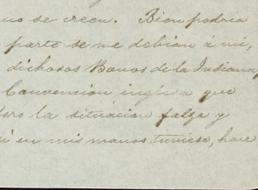 no se creen. Bien podria
parte se me debian á mi,
dichosos Bonos de la Indiana
Convencion inglesa que
la situacion falza y
en mis manos tuviese, hace